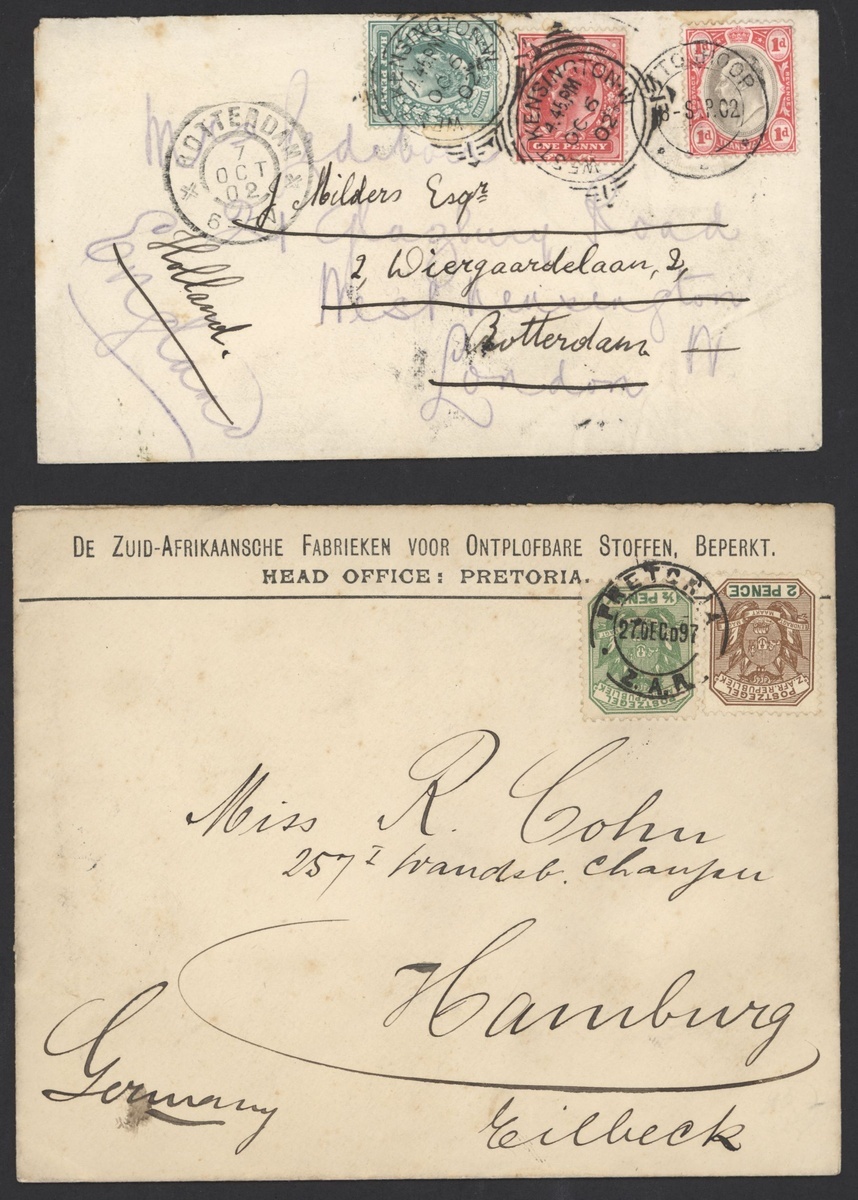 HALF PENNY
KENSINGTON.W
4.45.PM
OC 5
02
ONE PENNY
KENSINGTON.W
4.45.PM
OC 5
02
1d 1d
1d 1d
8-SEP.02
ROTTERDAM
7
OCT
02
J. Milders Esqr
Road
2, Wiergaardelaan, 2,
West Kensington
Rotterdam
London W
Holland.
England
DE ZUID-AFRIKAANSCHE FABRIEKEN VOOR ONTPLOFBARE STOFFEN, BEPERKT.
HEAD OFFICE: PRETORIA.
PRETORIA
27.DEC.97
Z.A.R.
½ PENCE
POSTZEGEL
Z.AFR.REPUBLIEK
2 PENCE
POSTZEGEL
Z.AFR.REPUBLIEK
Miss R. Cohn
257 I Wandsb. Chaussee
Hamburg
Germany
Eilbeck